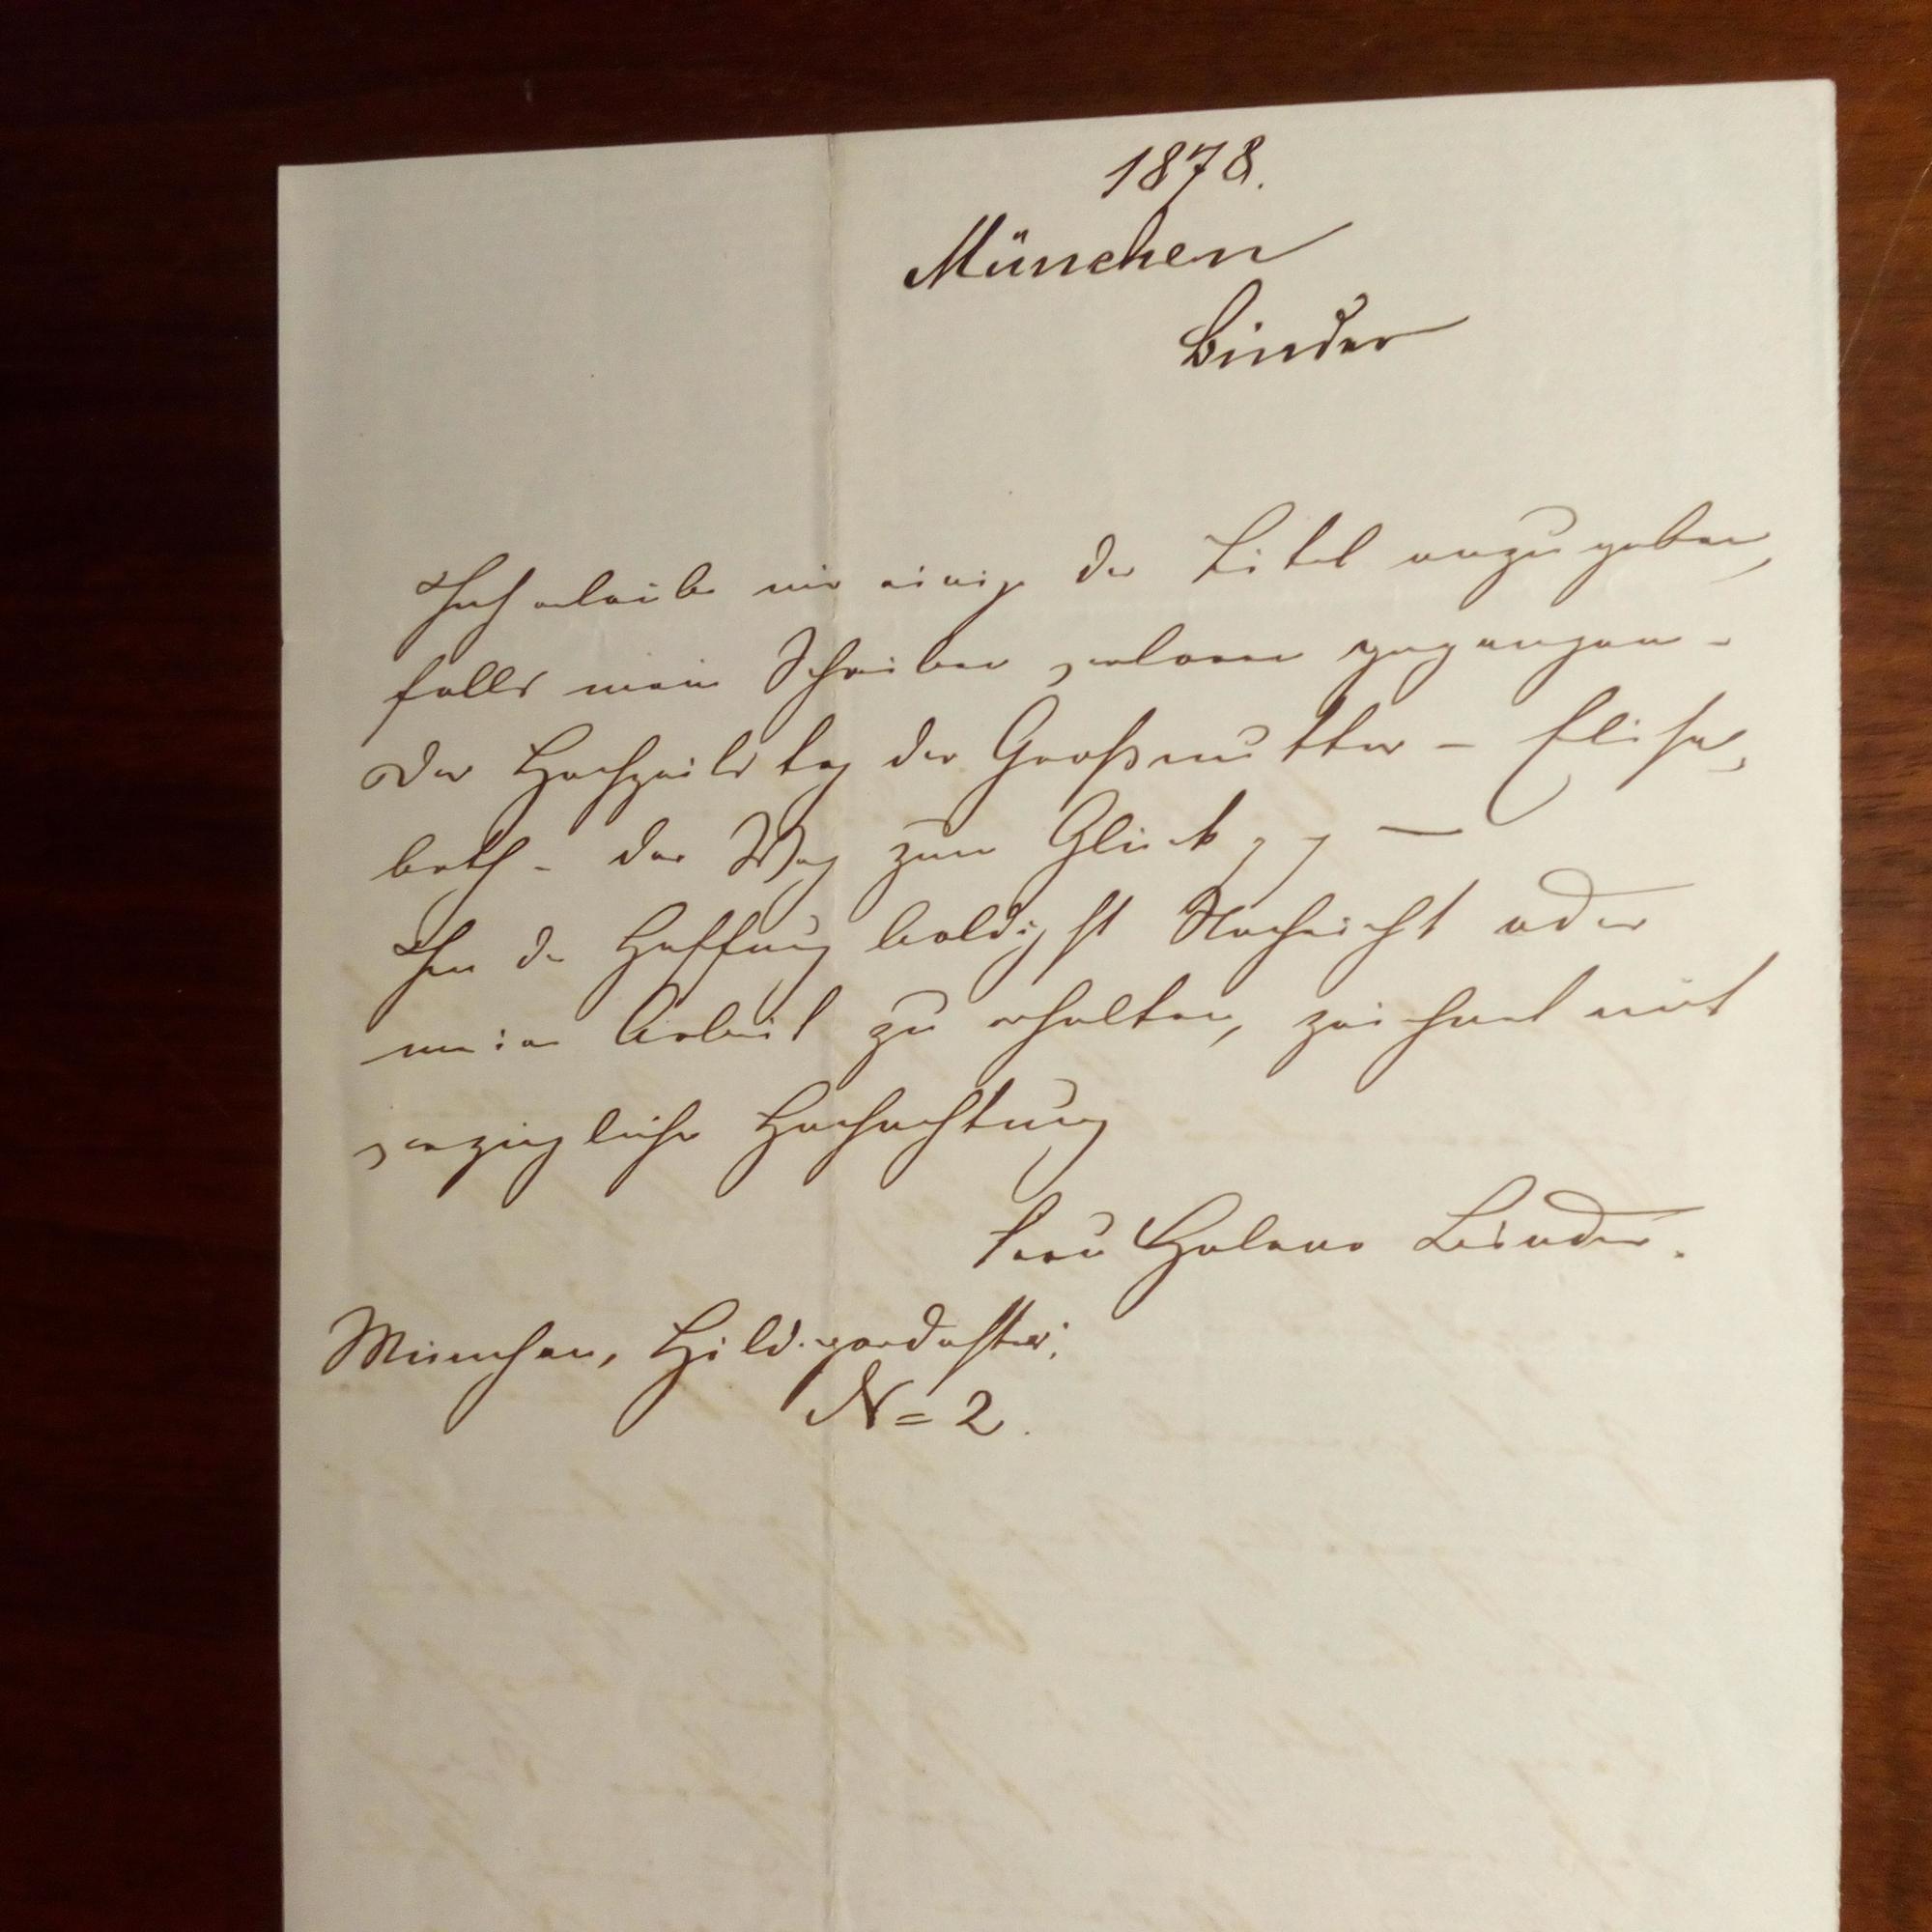 1878.
München
Binder
Ich erlaube mir einige der Titel anzugeben,
falls mein Schreiben verloren gegangen –
Der Hochzeitstag der Großmutter – Elisa-
beth – der Weg zum Glück, —
In der Hoffnung baldigst Nachricht oder
meine Arbeit zu erhalten, zeichnet mit
vorzüglicher Hochachtung
Frau Helene Binder.
München, Hildegardstr:
N= 2.